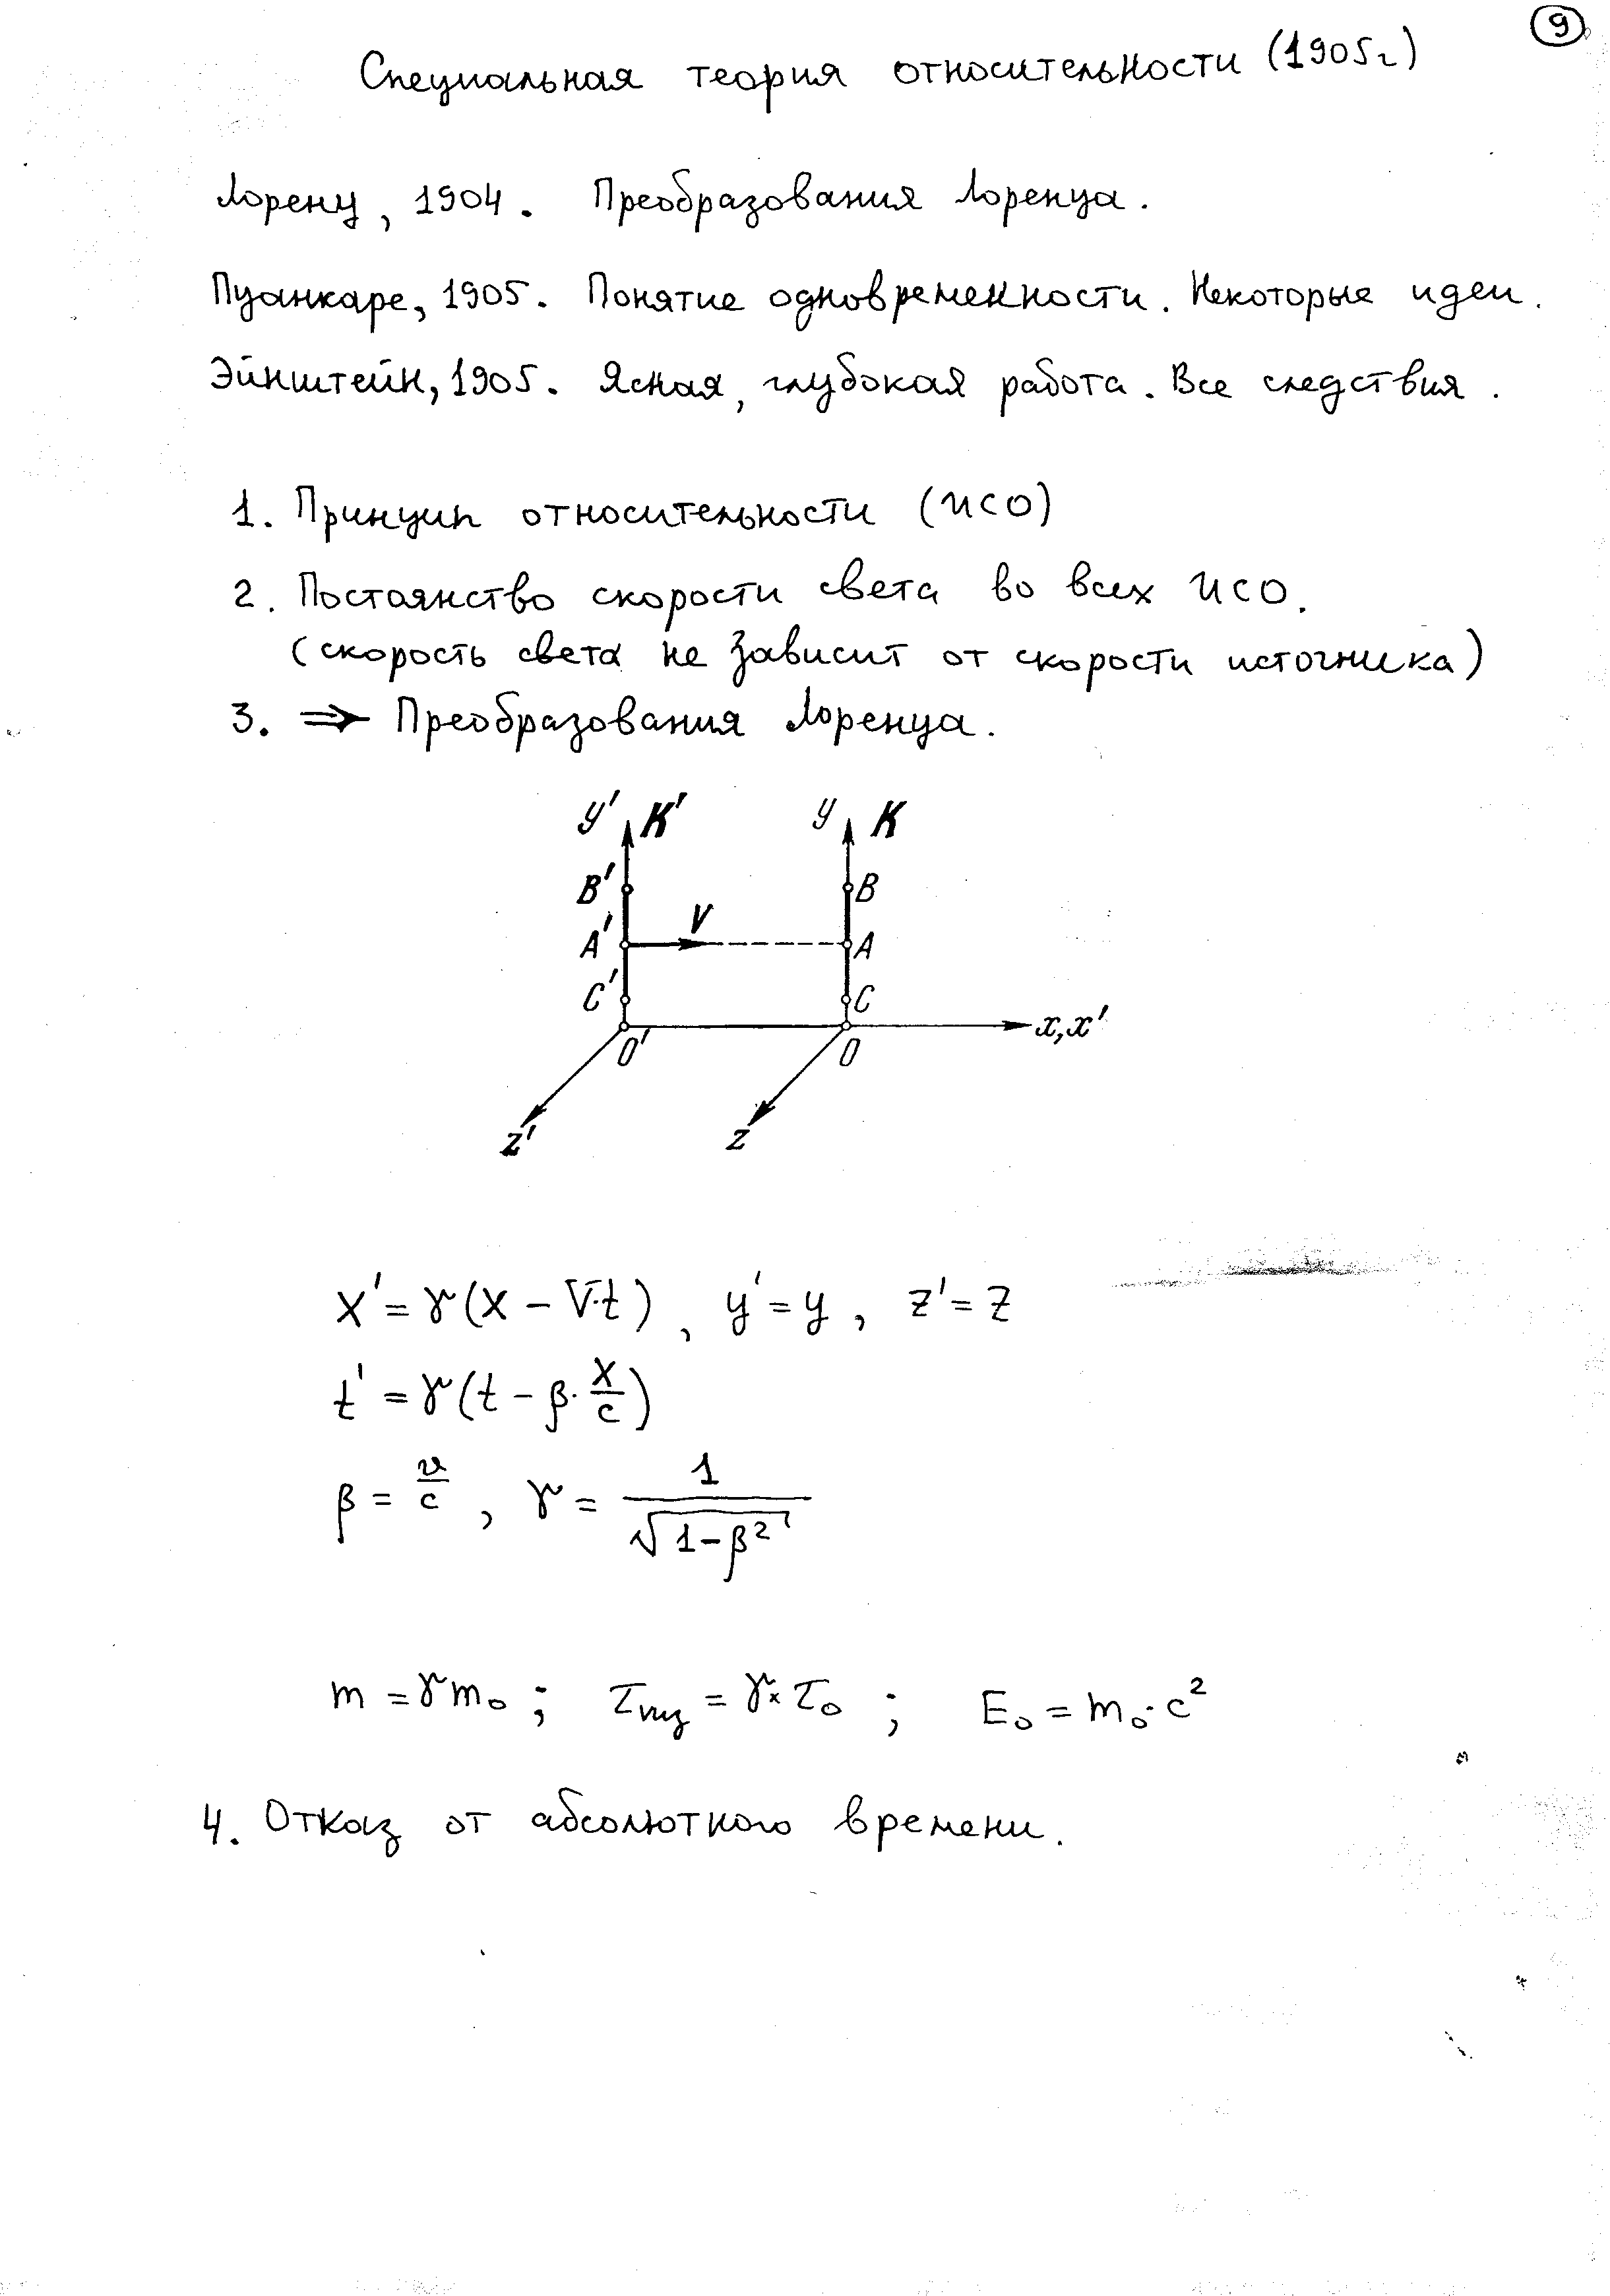 9
Специальная теория относительности (1905г)
Лоренц, 1904. Преобразования Лоренца.
Пуанкаре, 1905. Понятие одновременности. Некоторые идеи.
Эйнштейн, 1905. Ясная, глубокая работа. Все следствия.
1. Принцип относительности (ИСО)
2. Постоянство скорости света во всех ИСО.
(скорость света не зависит от скорости источника)
3. ⇒ Преобразования Лоренца.
y' K' y K
B' B
V
A' A
C' C
x, x'
O' O
z' z
x' = γ(x − V·t), y' = y, z' = z
t' = γ(t − β·x/c)
β = v/c, γ = 1/√(1−β²)
m = γm₀; τ = γ×τ₀; E₀ = m₀·c²
4. Отказ от абсолютного времени.